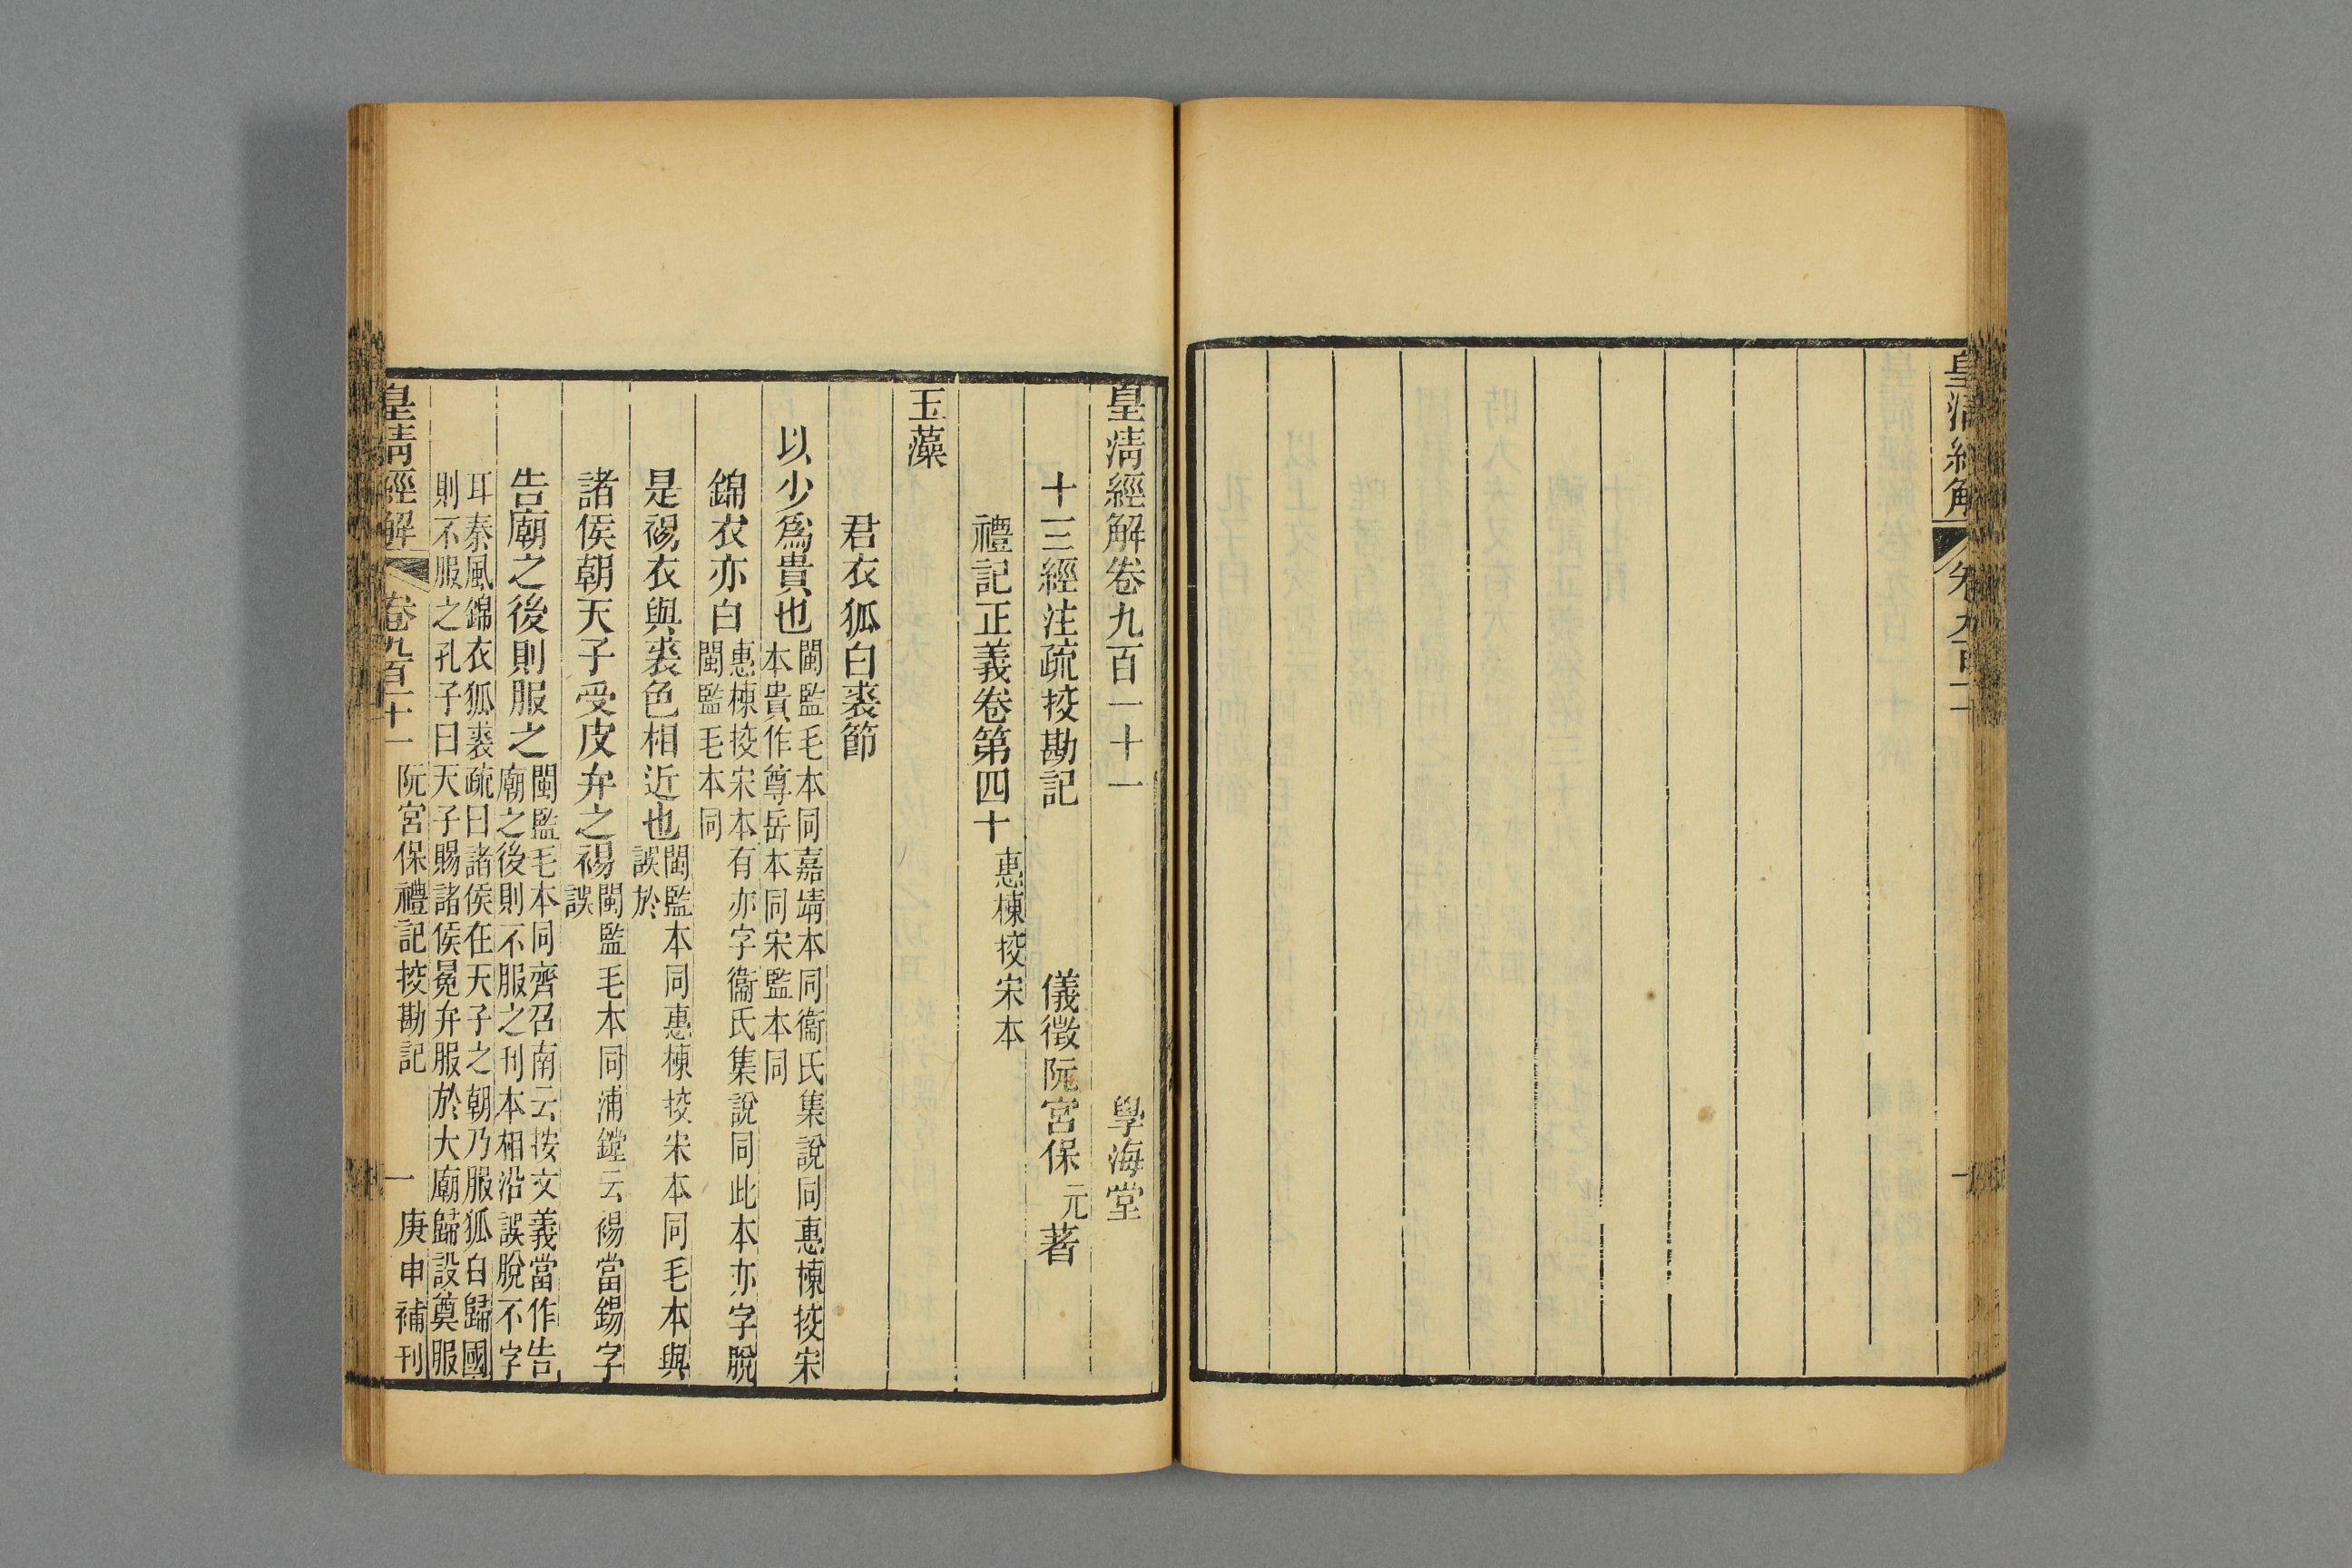 皇清經解
皇清經解卷九百一十一
學海堂
十三經注疏挍勘記
儀徵阮宮保元著
禮記正義卷第四十惠棟挍宋本
玉藻
君衣狐白裘節
以少爲貴也閩監毛本同嘉靖本同衞氏集說同惠棟挍宋
本貴作尊岳本同宋監本同
錦衣亦白惠棟挍宋本有亦字衞氏集說同此本亦字脫
閩監毛本同
是裼衣與裘色相近也閩監本同惠棟挍宋本同毛本與
誤於
諸侯朝天子受皮弁之裼閩監毛本同浦鏜云裼當錫字
誤
告廟之後則服之閩監毛本同齊召南云按文義當作告
廟之後則不服之刊本相沿誤脫不字
耳秦風錦衣狐裘疏曰諸侯在天子之朝乃服狐白歸國
則不服之孔子曰天子賜諸侯冕弁服於大廟歸設奠服
皇清經解
卷九百一十一
阮宮保禮記挍勘記
一
庚申補刊